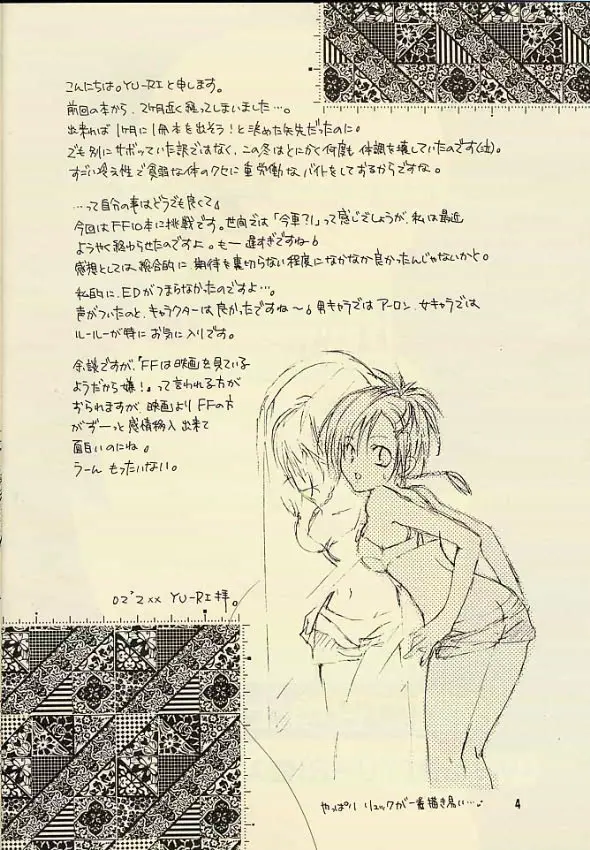 こんにちは。YU-RIと申します。
前回の本から、2ヶ月近く経ってしまいました…。
出来れば1ヶ月に1冊本を出そう!と決めた矢先だったのに。
でも別にサボッていた訳ではなく、この冬はとにかく何度も体調を壊していたのです(泣)。
すごい冷え性で貧弱な体のクセに重労働なバイトをしておるからですな。
…って自分の事はどうでも良くて。
今回はFF10本に挑戦です。世間では「今更?!」って感じでしょうが、私は最近
ようやく終わらせたのですよ。もー遅すぎですね。
感想としては、総合的に、期待を裏切らない程度になかなか良かったんじゃないかと。
私的に、EDがつまらなかったのですよ…。
声がついたのと、キャラクターは良かったですね〜。男キャラではアーロン、女キャラでは
ルールーが特にお気に入りです。
余談ですが、「FFは映画を見ている
ようだから嫌!」って言われる方が
おられますが、映画よりFFの方
がずーっと感情移入出来て
面白いのにね。
うーんもったいない。
02'2xx YU-RI拝。
やっぱりリュックが一番描き易い…。
4